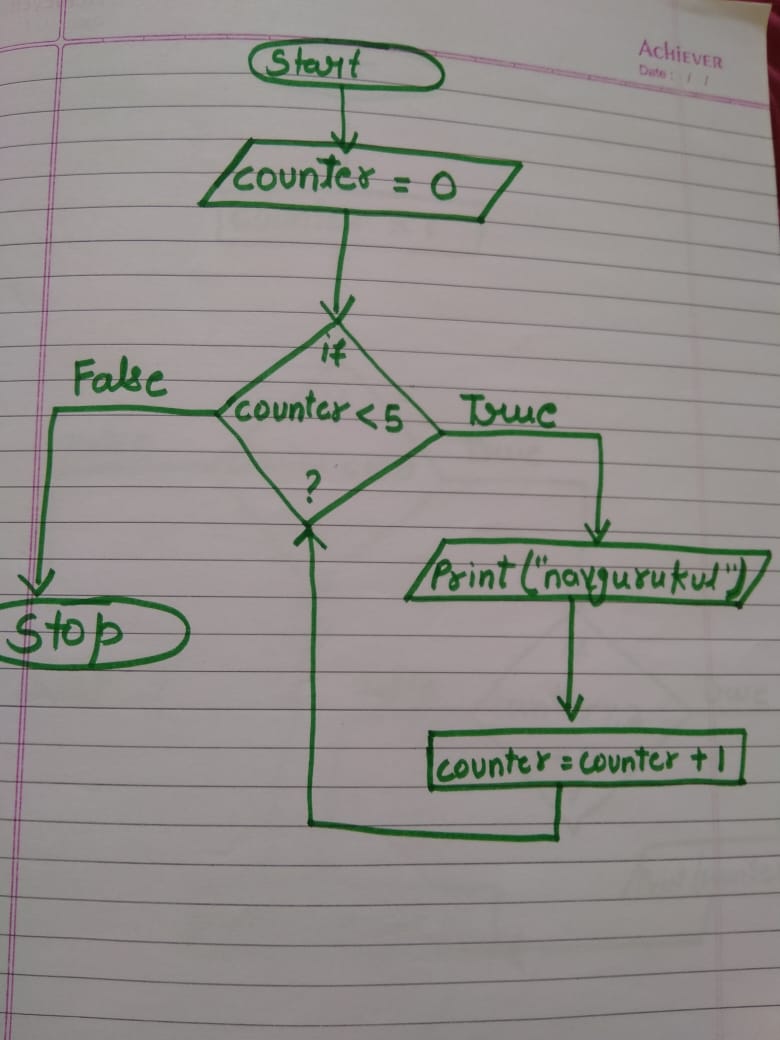 ACHIEVER
Date: / /
Start
counter = 0
if
counter < 5
?
False
True
Print ("navgurukul")
Stop
counter = counter + 1